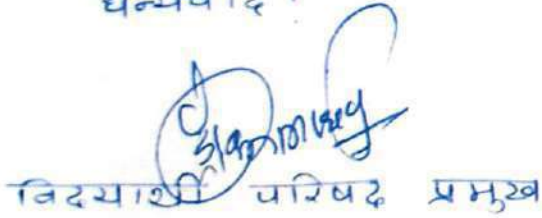 धन्यवाद.
विदयार्थी परिषद प्रमुख